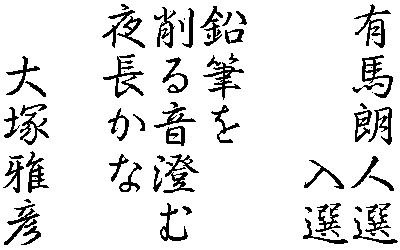 有馬朗人選
入選
鉛筆を
削る音澄む
夜長かな
大塚雅彦